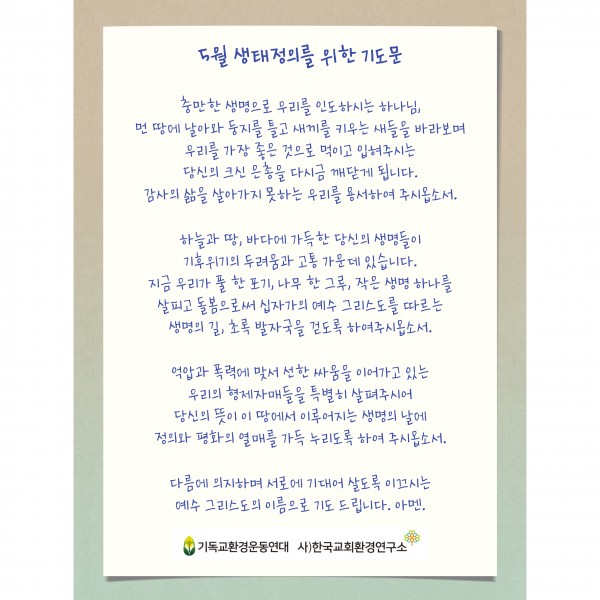 5월 생태정의를 위한 기도문
충만한 생명으로 우리를 인도하시는 하나님,
먼 땅에 날아와 둥지를 틀고 새끼를 키우는 새들을 바라보며
우리를 가장 좋은 것으로 먹이고 입혀주시는
당신의 크신 은총을 다시금 깨닫게 됩니다.
감사의 삶을 살아가지 못하는 우리를 용서하여 주시옵소서.
하늘과 땅, 바다에 가득한 당신의 생명들이
기후위기의 두려움과 고통 가운데 있습니다.
지금 우리가 풀 한 포기, 나무 한 그루, 작은 생명 하나를
살피고 돌봄으로써 십자가의 예수 그리스도를 따르는
생명의 길, 초록 발자국을 걷도록 하여주시옵소서.
억압과 폭력에 맞서 선한 싸움을 이어가고 있는
우리의 형제자매들을 특별히 살펴주시어
당신의 뜻이 이 땅에서 이루어지는 생명의 날에
정의와 평화의 열매를 가득 누리도록 하여 주시옵소서.
다름에 의지하며 서로에 기대어 살도록 이끄시는
예수 그리스도의 이름으로 기도 드립니다. 아멘.
기독교환경운동연대 사)한국교회환경연구소